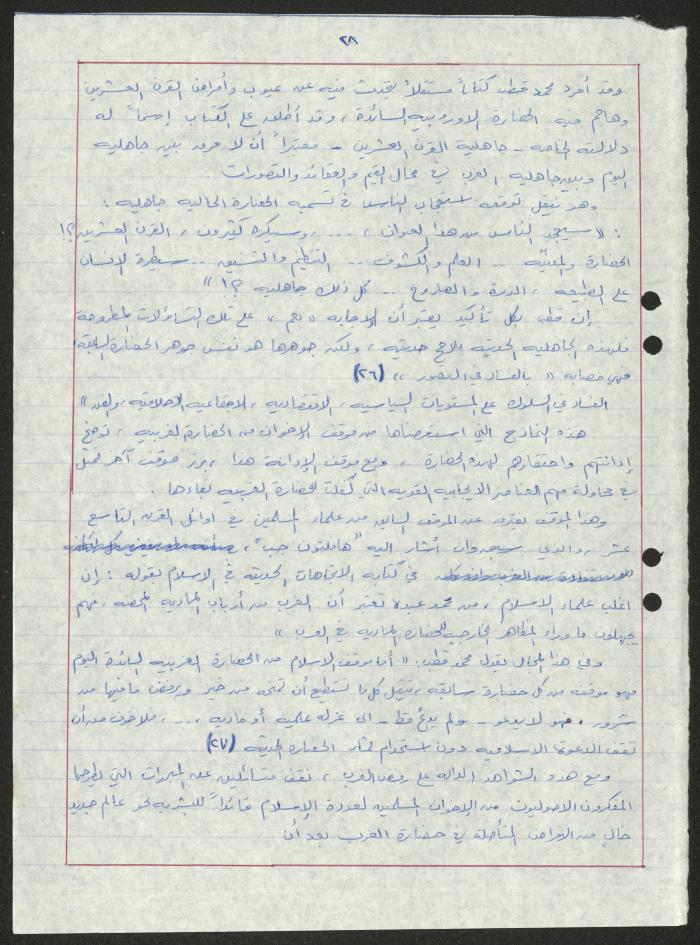 ٢٨
وقد أفرد محمد قطب كتاباً مستقلاً يتحدث فيه عن عيوب وأمراض القرن العشرين
وهاجم فيه الحضارة الاوروبية السائدة ، وقد أطلق على الكتاب إسماً له
دلالته الخاصة - جاهلية القرن العشرين - معتبراً أن لا فرق بين جاهلية
اليوم وبين جاهلية العرب في مجال القيم والعقائد والتصورات .
وهو ينقل توقعه استعجاب الناس في تسمية الحضارة الحالية جاهلية :
: « سيعجب الناس من هذا العنوان ، ... ، وسيكره كثيرون ، القرن العشرين ؟!
الحضارة والمدنية .. العلم والكشوف .. التنظيم والتنسيق .. سيطرة الإنسان
على الطبيعة ، الذرة والصاروخ .. كل ذلك جاهلية ؟! »
إن قطب بكل تأكيد يعتبر أن الإجابة « نعم » على تلك التساؤلات المطروحة
فلهذه الجاهلية الحديثة ملامح حديثة ، ولكن جوهرها هو نفس جوهر الحضارة السابقة
فهي مصابة « بالفساد في التصور ،، (٢٦)
الفساد في السلوك على المستويات السياسية ، الاقتصادية ، الاجتماعية الاخلاقية ، والفن »
هذه النماذج التي استعرضناها من موقف الإخوان من الحضارة الغربية ، توضح
إدانتهم واحتقارهم لهذه الحضارة ، ومع موقف الإدانة هذا ، برز موقف آخر تمثل
في محاولة فهم العناصر الايجابية القوية التي كفلت للحضارة الغربية بقاءها .
وهذا الموقف يفترق عن الموقف السابق من علماء المسلمين في اوائل القرن التاسع
عشر ، والذي سبق وأن أشار اليه "هاملتون جب" ،
في كتابه الاتجاهات الحديثة في الاسلام بقوله : إن
اغلب علماء الاسلام ، من محمد عبده تعتبر أن الغرب من أرباب المادية المحضة ، فهم
يجهلون ما وراء المظاهر الخارجية للحضارة المادية في الغرب »
وفي هذا المجال يقول محمد قطب : « أما موقف الاسلام من الحضارة الغربية السائدة اليوم
فهو موقفه من كل حضارة سابقة ، يتقبل كل ما تستطيع أن تمنحه من خير ويرفض ما فيها من
شرور . فهو لا يدعو - ولم يدعُ قط - الى عزلة علمية أو مادية ، ... ، فلا خوف من أن
تقف الدعوة الاسلامية دون استخدام ثمار الحضارة الحديثة (٢٧)
ومع هذه الشواهد الدالة على رفض الغرب ، نقف متسائلين عن المبررات التي يطرحها
المفكرون الاصوليون من الإخوان المسلمين لعودة الإسلام قائداً للبشرية نحو عالم جديد
خالٍ من الامراض المتأصلة في حضارة الغرب بعد أن